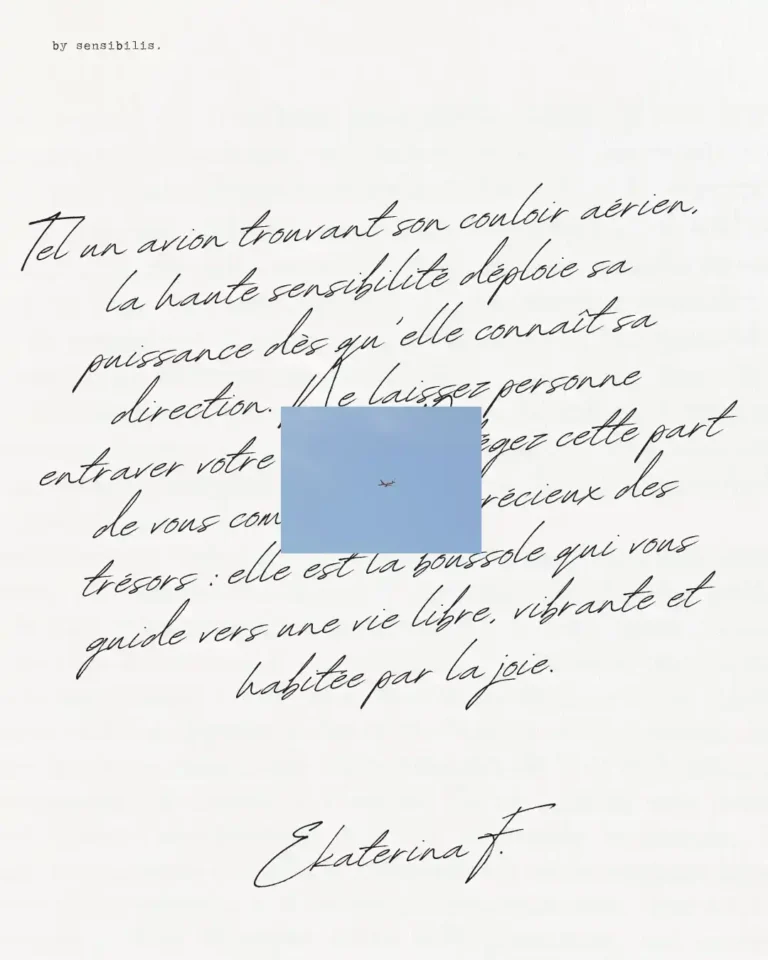 by sensibilis.
Tel un avion trouvant son couloir aérien,
la haute sensibilité déploie sa
puissance dès qu'elle connaît sa
direction. Ne laissez personne
entraver votre cette part
de vous des
trésors : elle est la boussole qui vous
guide vers une vie libre, vibrante et
habitée par la joie.
Ekaterina F.